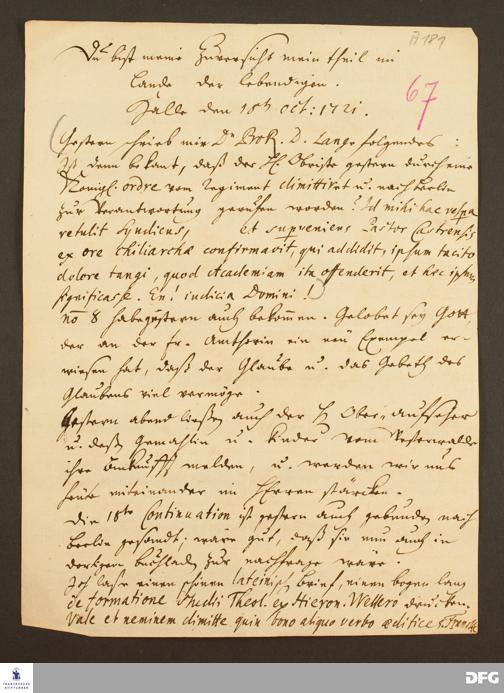 A 181
Du bist meine Zuversicht mein theil im
Lande der Lebendigen.
Halle den 18ten Oct: 1721.
67
Gestern schrieb mir Dr Prof. D. Lange folgendes:
Ist denn bekant, daß der H. Obriste gestern durch eine
Königl. ordre vom Regiment dimittiret u. nach Berlin
zur Verantwortung geruffen worden? Id mihi hac vespera
retulit Syndicus, et superveniens Pastor Castrensis
ex ore chiliarchae confirmavit, qui addidit, ipsum tacito
dolore tangi, quod Academiam ita offenderit, et hec ipsum
significasse. En! iudicia Domini!
no 8 habe gestern auch bekommen. Gelobet sey Gott,
der an der fr. ein neu Exempel er-
wiesen hat, daß der Glaube u. das Gebeth des
Glaubens viel vermöge.
Gestern abend ließen auch der H Ober-Aufseher
u. deßen Gemahlin u. Kinder vom
ihre Ankunfft melden, u. werden wir uns
heute miteinander im Herren stärcken.
Die 18te Continuation ist gestern auch gebunden nach
Berlin gesandt; wäre gut, daß sie nun auch in
dortigen buchladen zur nachfrage wäre.
Ich lasse einen schönen lateinisch brief, einen bogen lang
de formatione Studii Theol. ex Hieron. Wellero drucken.
Vale et neminem dimitte quin bono aliquo verbo aedifices.
FRANCKESCHE STIFTUNGEN
DFG